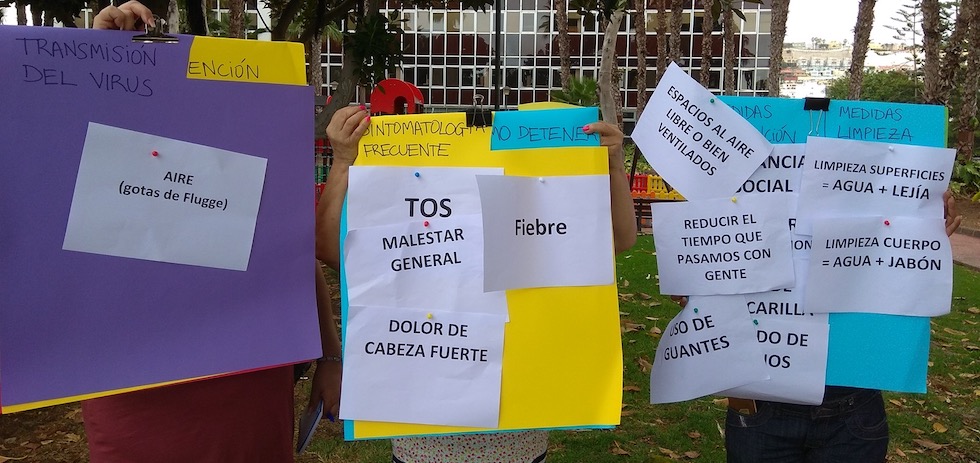 TRANSMISIÓN
DEL VIRUS
ENCIÓN
AIRE
(gotas de Flugge)
SINTOMATOLOGÍA
FRECUENTE
NO DETENER
TOS
MALESTAR
GENERAL
DOLOR DE
CABEZA FUERTE
Fiebre
MEDIDAS
NCIÓN
MEDIDAS
LIMPIEZA
ESPACIOS AL AIRE
LIBRE O BIEN
VENTILADOS
ANCIA
SOCIAL
REDUCIR EL
TIEMPO QUE
PASAMOS CON
GENTE
USO DE
GUANTES
DE
CARILLA
DO DE
OS
LIMPIEZA SUPERFICIES
= AGUA + LEJÍA
LIMPIEZA CUERPO
= AGUA + JABÓN